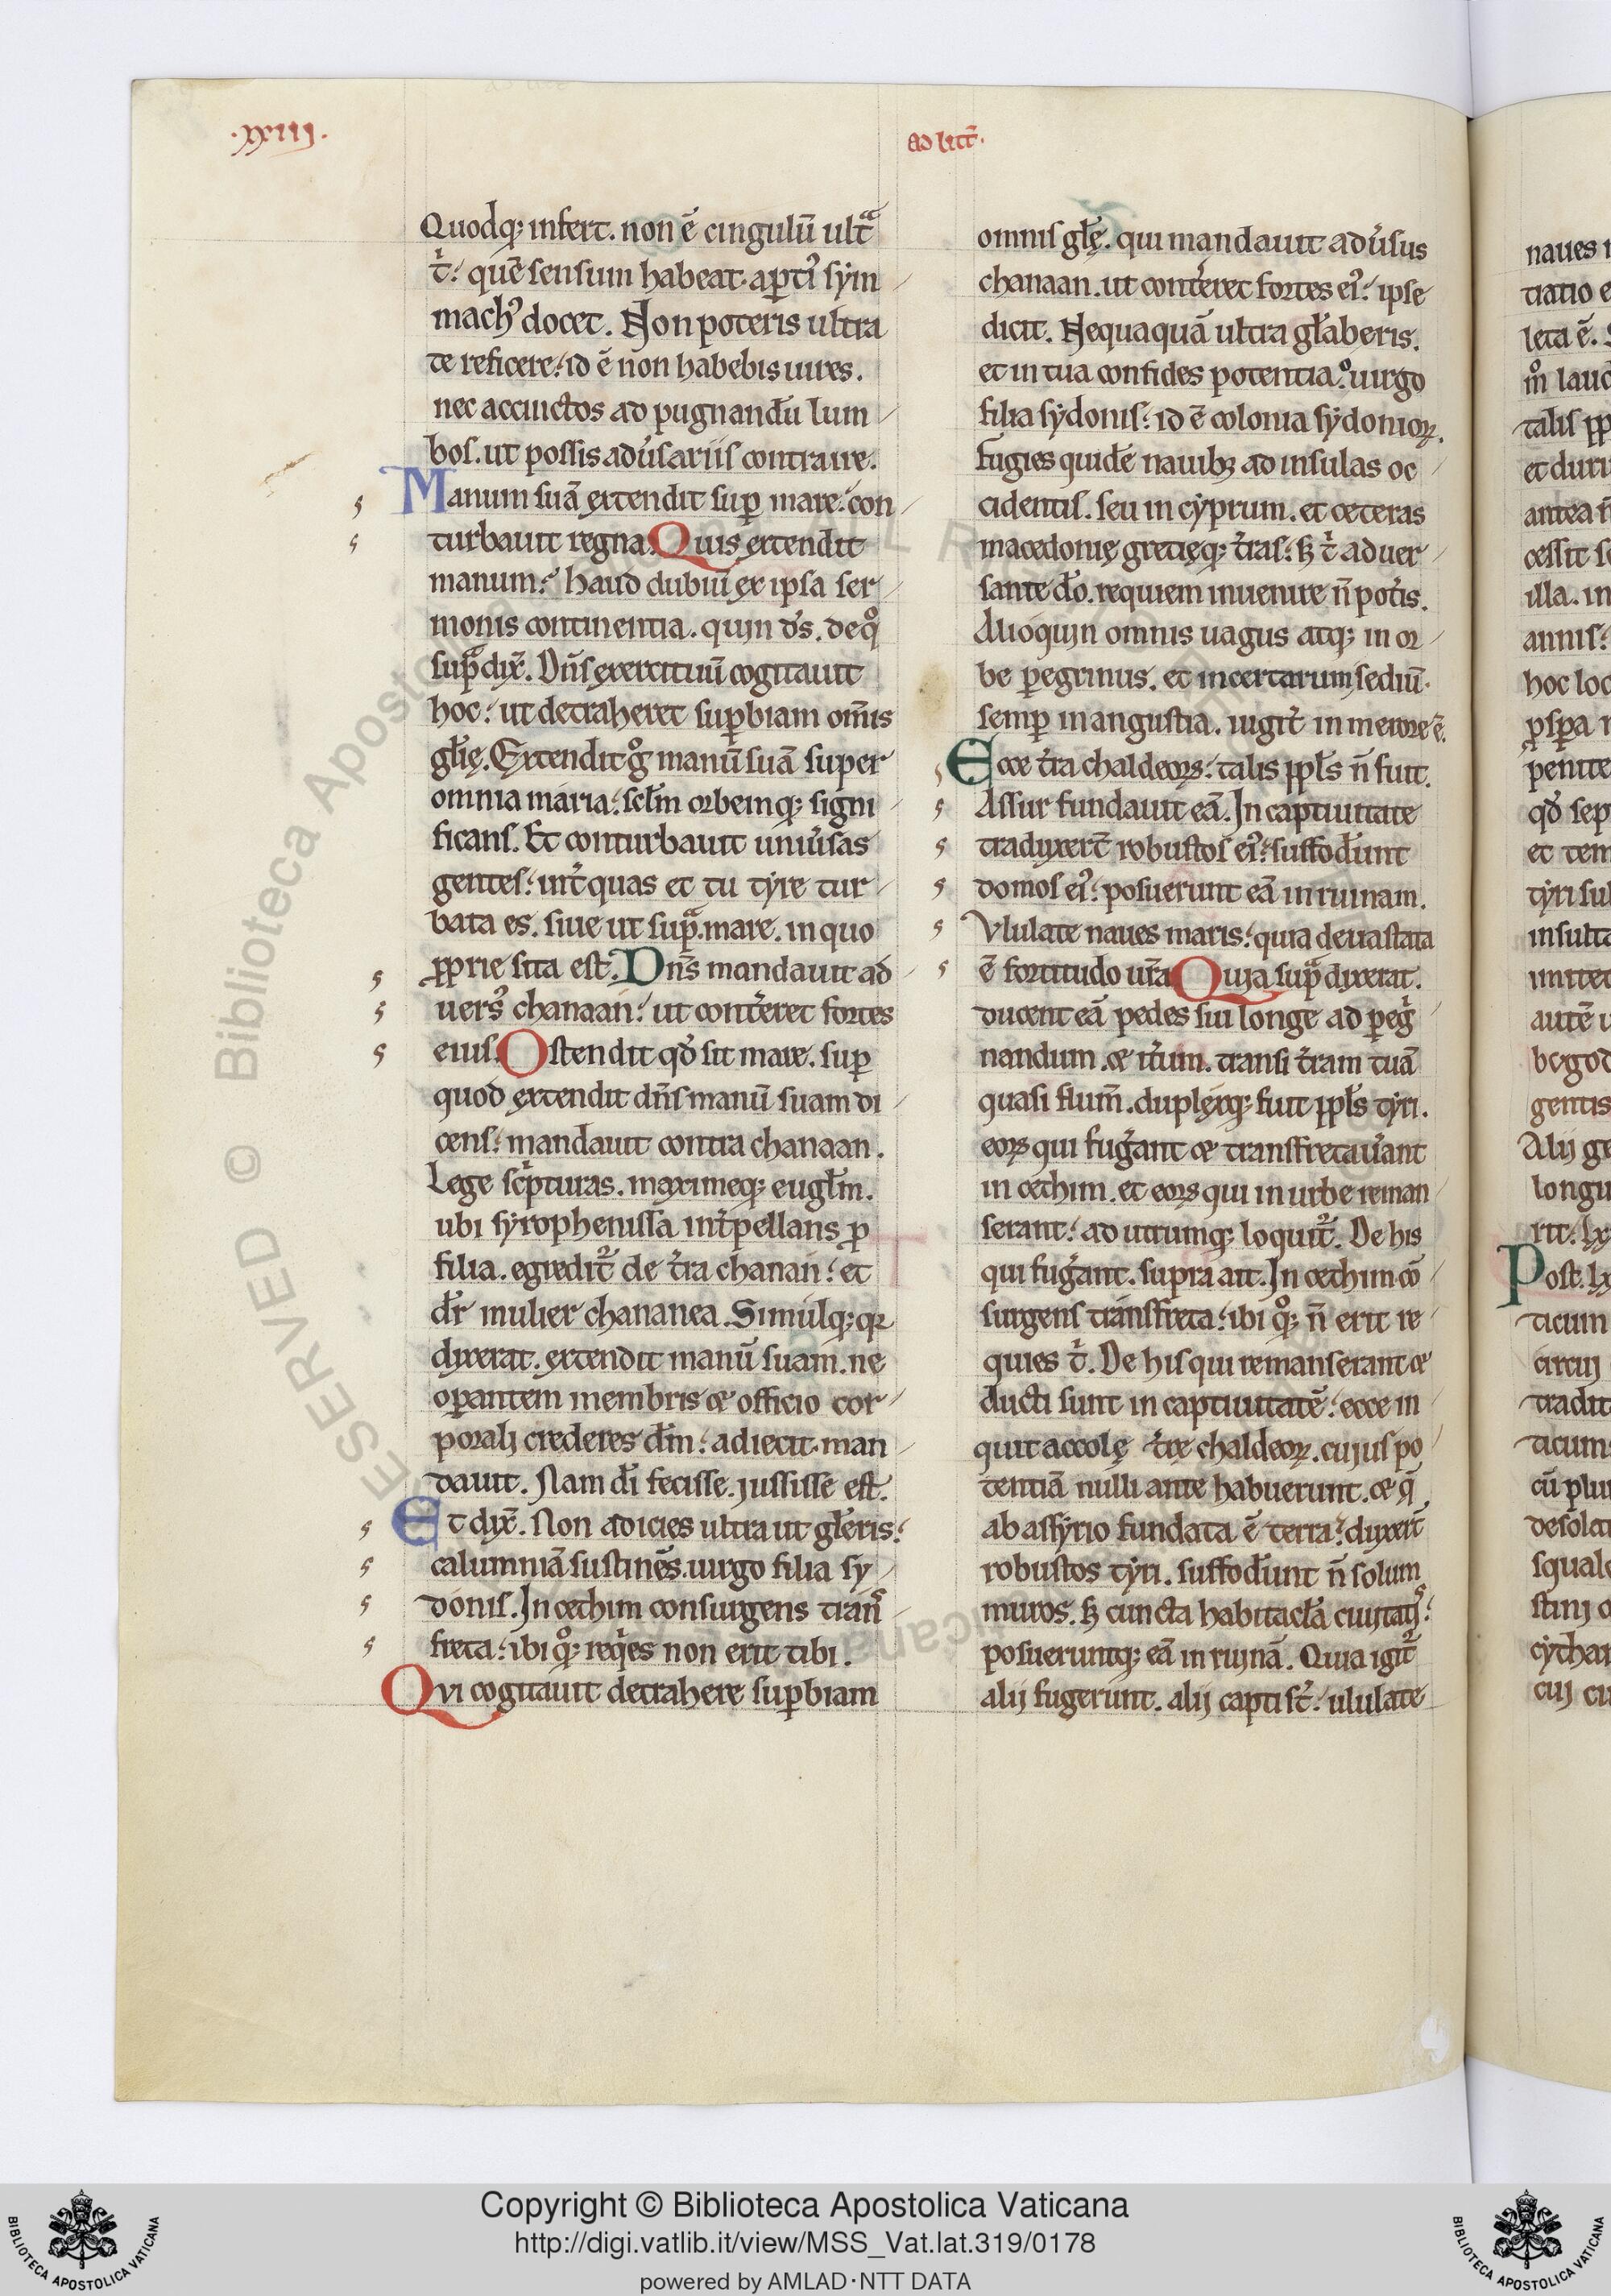 ·xxiij·
ad litt̄.
Quodq; infert. non ē cingulū ultᵃ
tⁱ: quē sensum habeat. aꝑti᾽ sẏm
mach᾽ docet. Non poteris ultra
te reficere: id ē non habebis uires.
nec accinctos ad pugnandū lum
bos. ut possis adu᾽sariis contraire.
Manum suā extendit suꝑ mare: con
turbauit regna. Quis extendit
manum? haud dubiū ex ipsa ser
monis continentia. quin d̄s. de qᵒ
supᵃ dix̄. Dn̄s exercituū cogitauit
hoc: ut detraheret suꝑbiam om̄is
gl̄ię. Extendit gᵒ manū suā super
omnia maria: sc̄lm orbemq; signi
ficans. Et conturbauit uniu᾽sas
gentes: int᾽ quas et tu tẏre tur
bata es. siue ut supᵃ. mare. in quo
ꝓprie sita est. Dn̄s mandauit ad
uers᾽ chanaan: ut cont᾽eret fortes
eius. Ostendit qd̄ sit mare. suꝑ
quod extendit dn̄s manū suam di
cens: mandauit contra chanaan.
Lege scⁱpturas. maximeq; eugl̄m.
ubi sẏrophenissa int᾽pellans ꝓ
filia. egredit᾽ de t᾽ra chanan: et
dr̄ mulier chananea. Simulq; qꝛ
dixerat. extendit manū suam. ne
oꝑantem membris & officio cor
poralj crederes dm̄: adiecit. man
dauit. Nam dī fecisse. jussisse est.
Et dix̄. Non adicies ultra ut gl̄eris:
calumniā sustinēs. uirgo filia sẏ
donis. In cethim consurgens trans
freta: ibi qᵒ; reqⁱes non erit tibi.
Qvi cogitauit detrahere suꝑbiam
omnis gl̄ę. qui mandauit adu᾽sus
chanaan. ut cont᾽eret fortes ei᾽: ipse
dicit. Nequaquā ultra gl̄aberis.
et in tua confides potentia. o uirgo
filia sẏdonis: id ē colonia sẏdonioꝝ.
Fugies quidē nauibꝫ ad insulas oc
cidentis. seu in cẏprum. et ceteras
macedonię gretięq; t᾽ras: sꝫ tⁱ aduer
sante dō. requiem inuenire n̄ pot᾽is.
Alioquin omnis uagus atq; in or
be ꝑegrinus. et incertarum sediū.
semꝑ in angustia. iugit᾽ in merore ē.
Ecce t᾽ra chaldeoꝝ: talis ꝓpl̄s n̄ fuit.
Assur fundauit eā. In captiuitate
traduxer̄t robustos ei᾽: suffod᾽unt
domos ei᾽: posuerunt eā in ruinam.
Vlulate naues maris: quia deuastata
ē fortitudo ur̄a. Quia supᵃ dixerat.
ducent eā pedes sui longe ad ꝑegⁱ
nandum. & it᾽um. transi t᾽ram tuā
quasi flum̄. duplęxq; fuit ꝓpl̄s tẏri.
eoꝝ qui fug᾽ant & transfretau᾽ant
in cethim. et eoꝝ qui in urbe reman
serant: ad utrumq; loquit᾽. De his
qui fug᾽ant. supra ait. In cethim cō
surgens transfreta: ibi qᵒ; n̄ erit re
quies tⁱ. De his qui remanserant &
ducti sunt in captiuitatē: ecce in
quit accolę t᾽rę chaldeoꝝ. cujus po
tentiā nulli ante habuerunt. & q̄
ab assẏrio fundata ē terra: duxert̄
robustos tẏri. suffod᾽unt n̄ solum
muros. sꝫ cuncta habitacl̄a ciuitatis:
posueruntq; eā in rujnā. Quia igit᾽
alij fugerunt. alij capti st̄: ululate
Copyright © Biblioteca Apostolica Vaticana
http://digi.vatlib.it/view/MSS_Vat.lat.319/0178
powered by AMLAD·NTT DATA